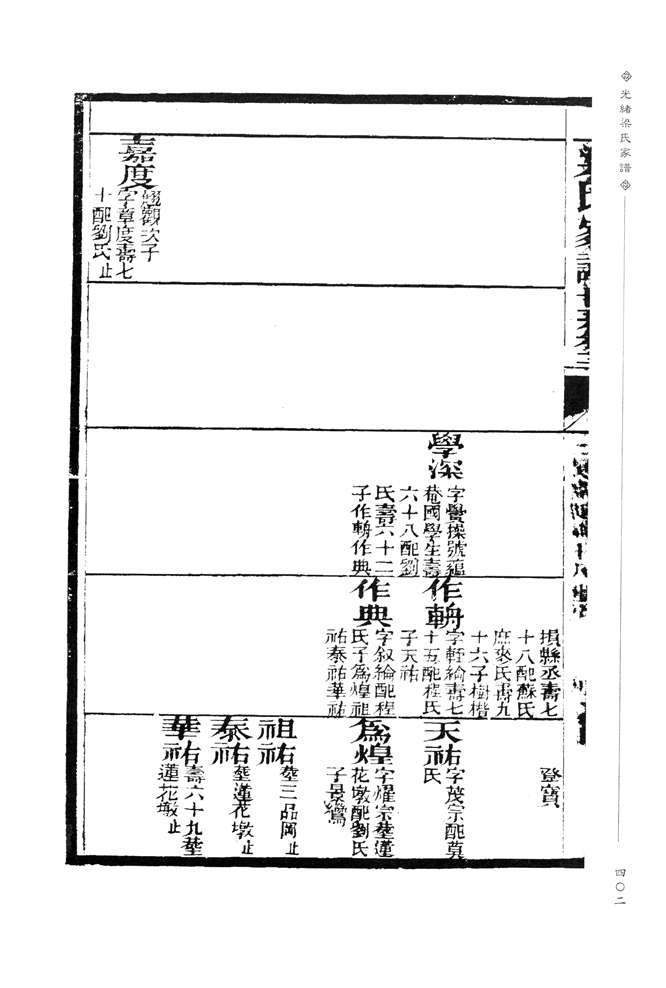 光緒梁氏家譜
四〇二
梁氏家譜
士嘉度
觀次子
字章度壽七
十配劉氏止
學深
字學操號蘊
菴國學生壽
六十八配劉
氏壽六十二
子作輈作典
損縣丞壽七
十八配蘇氏
庶麥氏壽九
十六子樹楷
作輈
字輊綸壽七
十五配程氏
子天祐
作典
字叙綸配程
氏子為煌祖
祐泰祐華祐
登寶
天祐
字茂宗配莫
氏
為煌
字燿宗塟蓮
花墩配劉氏
子景鸞
祖祐
塟三品岡止
泰祐
塟蓮花墩止
華祐
壽六十九塟
蓮花墩止